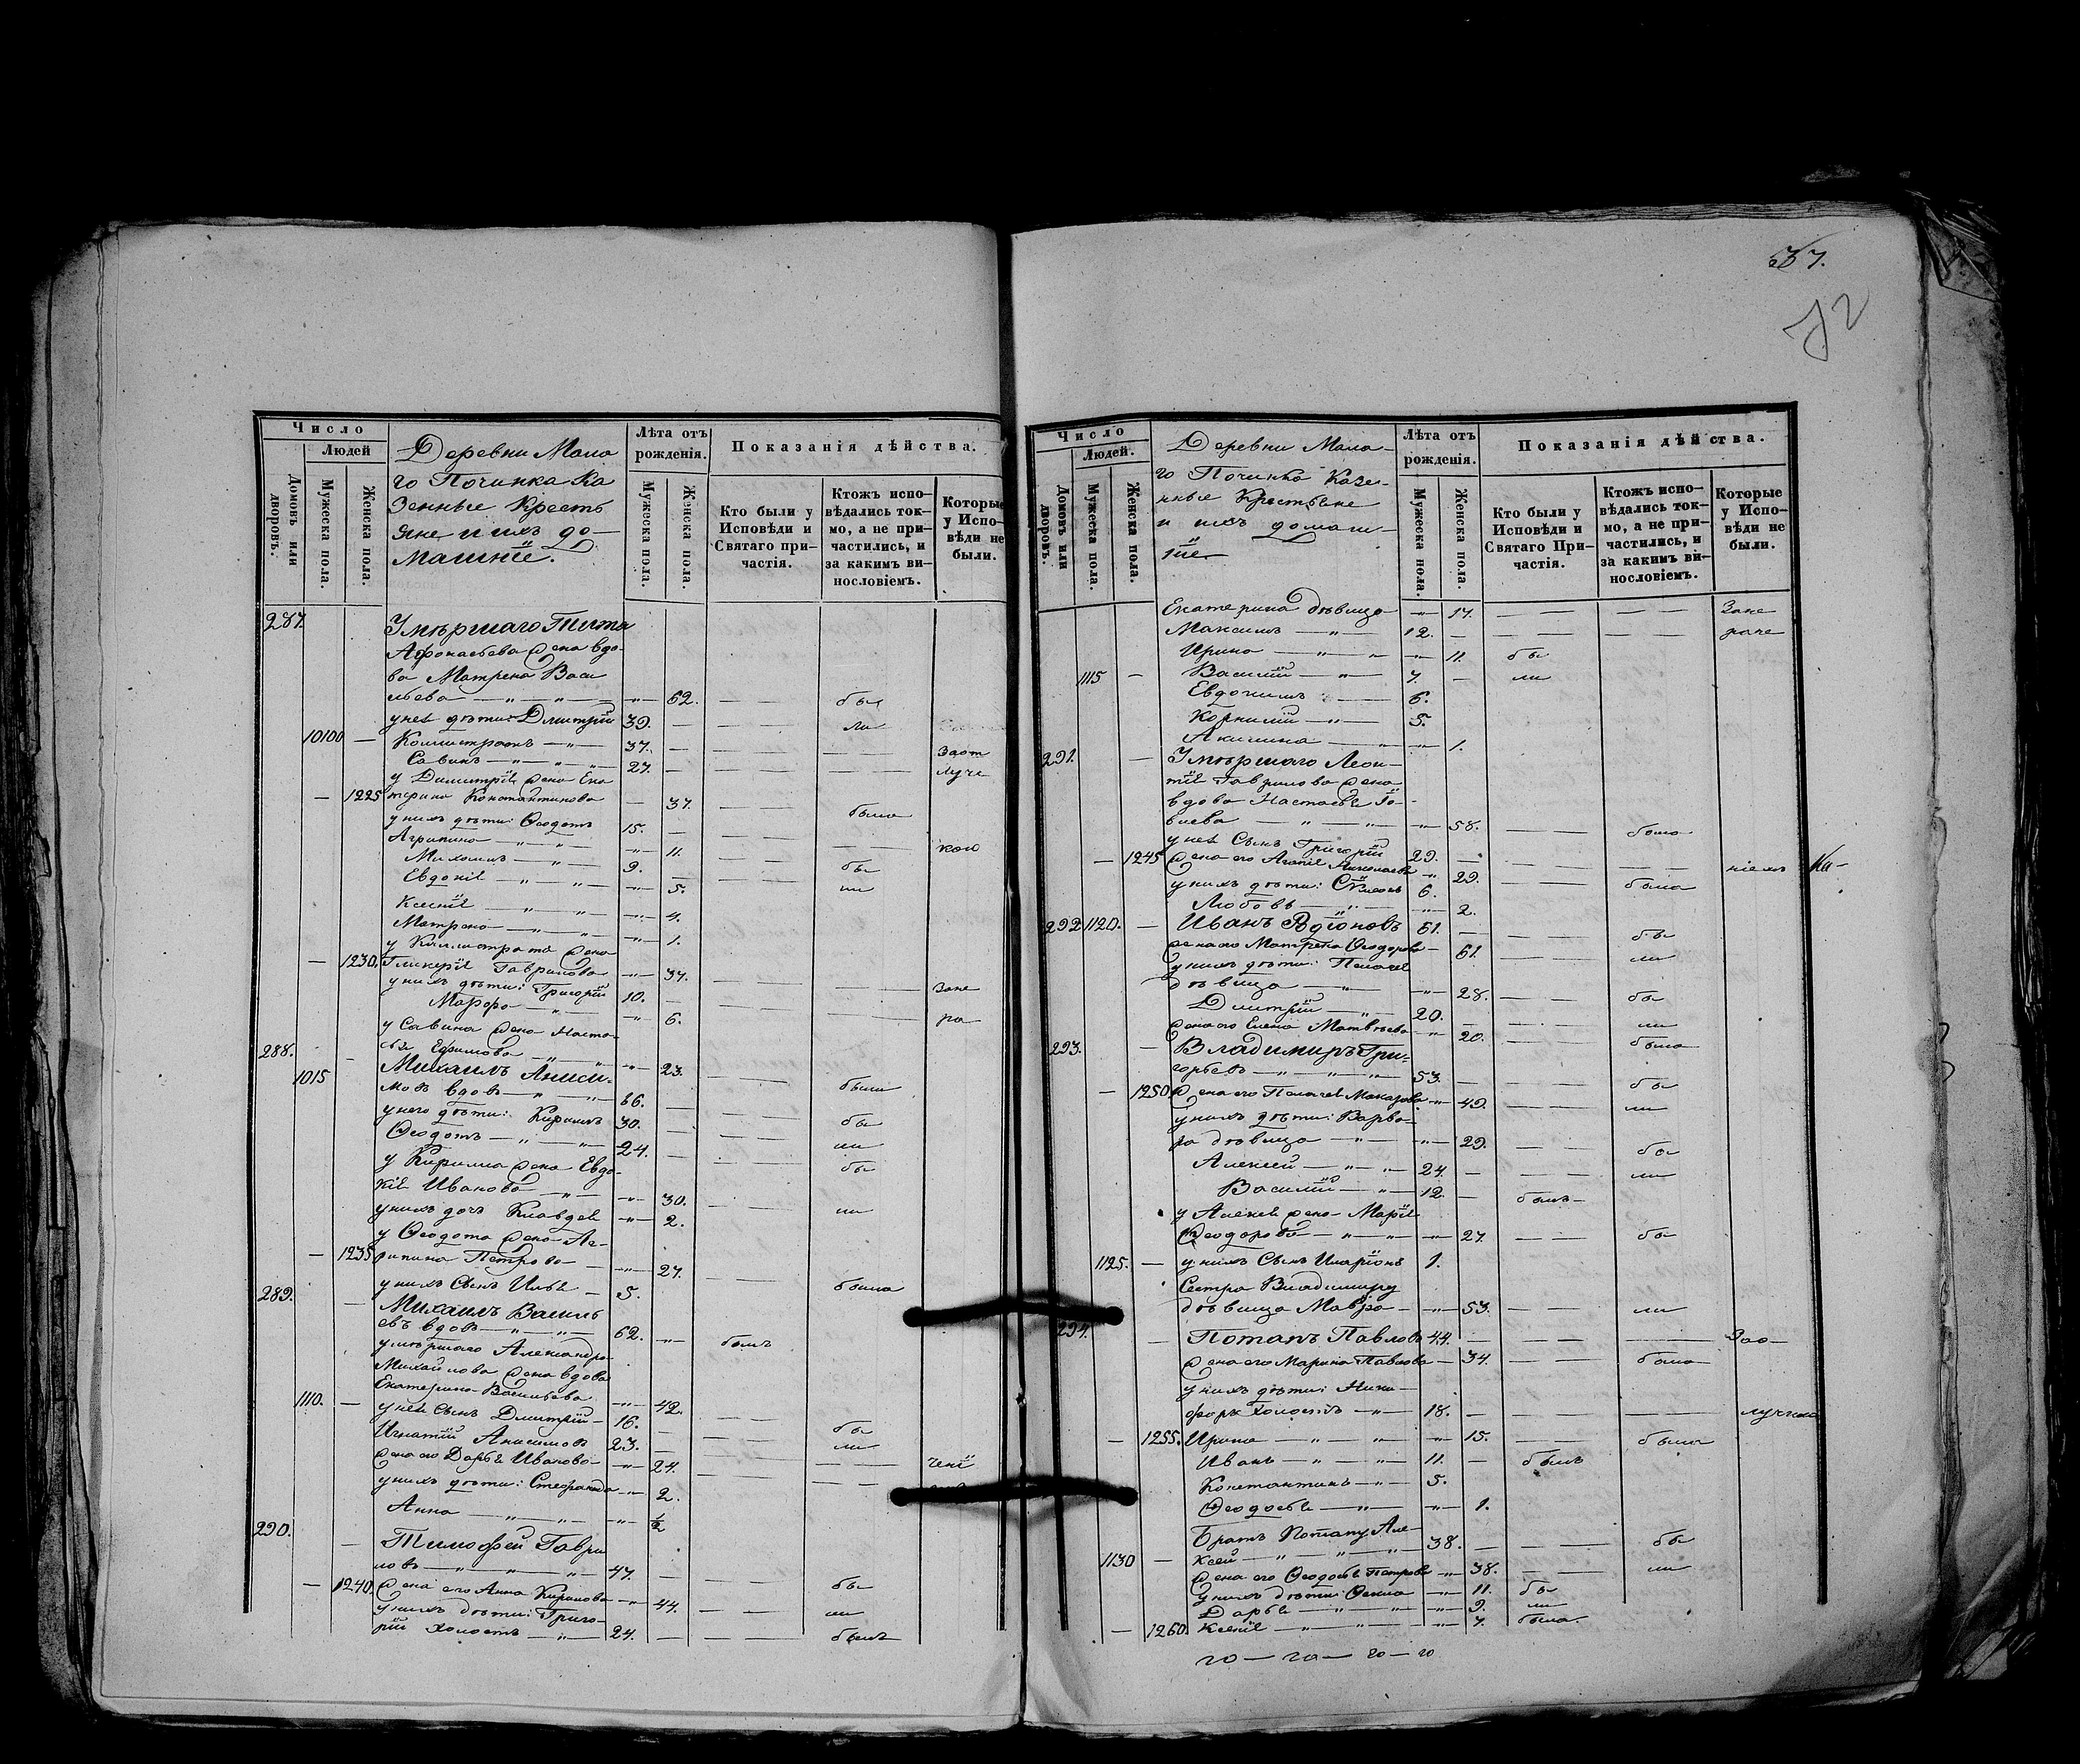 37.
72
Число
Людей
Домовъ или дворовъ.
Мужеска пола.
Женска пола.
Деревни Мало
го Починка Ка
зенные Кресть
яне и ихъ до–
машніе.
Лѣта отъ рожденія.
Мужеска пола.
Женска пола.
Показанія дѣйства.
Кто были у Исповѣди и Святаго при–частія.
Ктожъ испо–вѣдались ток–мо, а не при–частились, и за какимъ ви–нословіемъ.
Которые у Испо–вѣди не были.
287. Умѣршаго Тита
Афонасьева жена вдо–
ва Матрена Васи
льева — „ — „ — 62. бы
у неѣ дѣти: Дмитрій 39. — ли
10100 — Каллистратъ — „ — 37. — Заот
Савинъ — „ — „ — 27. — луче
у Димитрія жена Ека
— 1225 терина Константинова — 37. была
у нихъ дѣти: Ѳеодотъ 15. —
Агрипина — „ — „ — 11. кою
Михаилъ — „ — 9. — бы
Евдокія — „ — „ — 5. ли
Ксенія — „ — „ — 4.
Матрена — „ — „ — 1.
у Каллистрата жена
— 1230. Гликерія Гаврилова — 37.
у нихъ дѣти: Григорій 10. — Зане
Марфа — „ — 6. ра
у Савина жена Наста–
сья Ефимова — „ — „ — 23.
288. — Михаилъ Аниси–
1015 мовъ вдовъ — „ — „ — 66. — были
у него дѣти: Кирилъ 30. — бы
Ѳеодотъ — „ — „ — 24. — ли
у Кирилла жена Евдо–
кія Иванова — „ — 30. бы
у нихъ дочь Клавдея — 2. ли
у Ѳеодота жена Аг–
— 1235 рипина Петрова — 27.
у нихъ Сынъ Илья — 5. была
289. — Михаилъ Василь
евъ вдовъ — „ — „ — 62. — былъ
умѣршаго Александра
Михайлова жена вдова
Екатерина Васильева — 42.
1110. — у неѣ Сынъ Дмитрій — 16. — бы
Игнатій Анисимовъ 23. — ли
жена его Дарья Иванова — 24. чені
у нихъ дѣти: Стефанида — 2.
Анна — „ — „ — ½
290. — Тимофей Гаври
ловъ — „ — „ — „ — 47. — бы
— 1240. жена его Анна Кирилова — 44. ли
у нихъ дѣти: Григо–
рій холостъ — „ — 24. — былъ
Число
Людей.
Домовъ или дворовъ.
Мужеска пола
Женска пола.
Деревни Мала–
го Починка Казе–
нные Крестьяне
и ихъ домаш–
ніе
Лѣта отъ рожденія.
Мужеска пола.
Женска пола.
Показанія дѣйства.
Кто были у Исповѣди и Святаго При–частія.
Ктожъ испо–вѣдались ток–мо, а не при–частились, и за какимъ ви–нословіемъ.
Которые у Испо–вѣди не были.
Екатерина дѣвица — 17. — — Зане
Максимъ — „ — 12. — — раче
Ирина — „ — „ — 11. бы
1115 — Василій — „ — 7. — ли
Евдокимъ — 6.
Корнилій — „ — 5.
Акилина — „ — 1.
291. — Умѣршаго Леон–
тія Гаврилова жена
вдова Настасья
— „ — „ — 58. — была
у неѣ Сынъ Григорій 29. —
— 1245 жена его Николаева — 29. ніемъ На–
у нихъ дѣти: 6. была
Любовь — „ — 2.
292 1120. — Иванъ Родіоновъ 61. — бы
жена его Матрена Ѳеодорова — 61. ли
у нихъ дѣти: Пелагея
дѣвица — „ — 28. — бы
Дмитрій — „ — 20. — ли
жена его Елена Матвѣева — 20. была
293. — Владимиръ Гри–
горьевъ — „ — „ — „ — 53. — бы
— 1250 жена его Пелагея Макарова — 49. ли
у нихъ дѣти: Варва–
ра дѣвица — „ — 29. бы
Алексей — „ — „ 24. — ли
Василій — „ — 12. — былъ
у Алексея жена Марія
Ѳеодорова — „ — „ — 27. — бы
1125. — у нихъ Сынъ Иларіонъ 1.
Сестра Владимиру
дѣвица Мавра — 53. — ли
294. — Потапъ Павловъ 44. — Зао–
жена его Марина Павлова — 34. была
у нихъ дѣти: Ника–
форъ холостъ — „ — 18. — лучкою
— 1255. Ирина — „ — „ — 15. была
Иванъ — „ — „ — 11. — былъ
Константинъ — „ — 5.
Ѳеодосья — „ — 1.
Братъ Потапу Але–
1130 — ксей — „ — „ — „ — 38. — бы
жена его Ѳеодосья Петрова — 38. ли
у нихъ дѣти: Фекла — 11. бы
Дарья — „ — „ — 9. ли
— 1260. Ксенія — „ — „ — 7. была
го — го — го — го